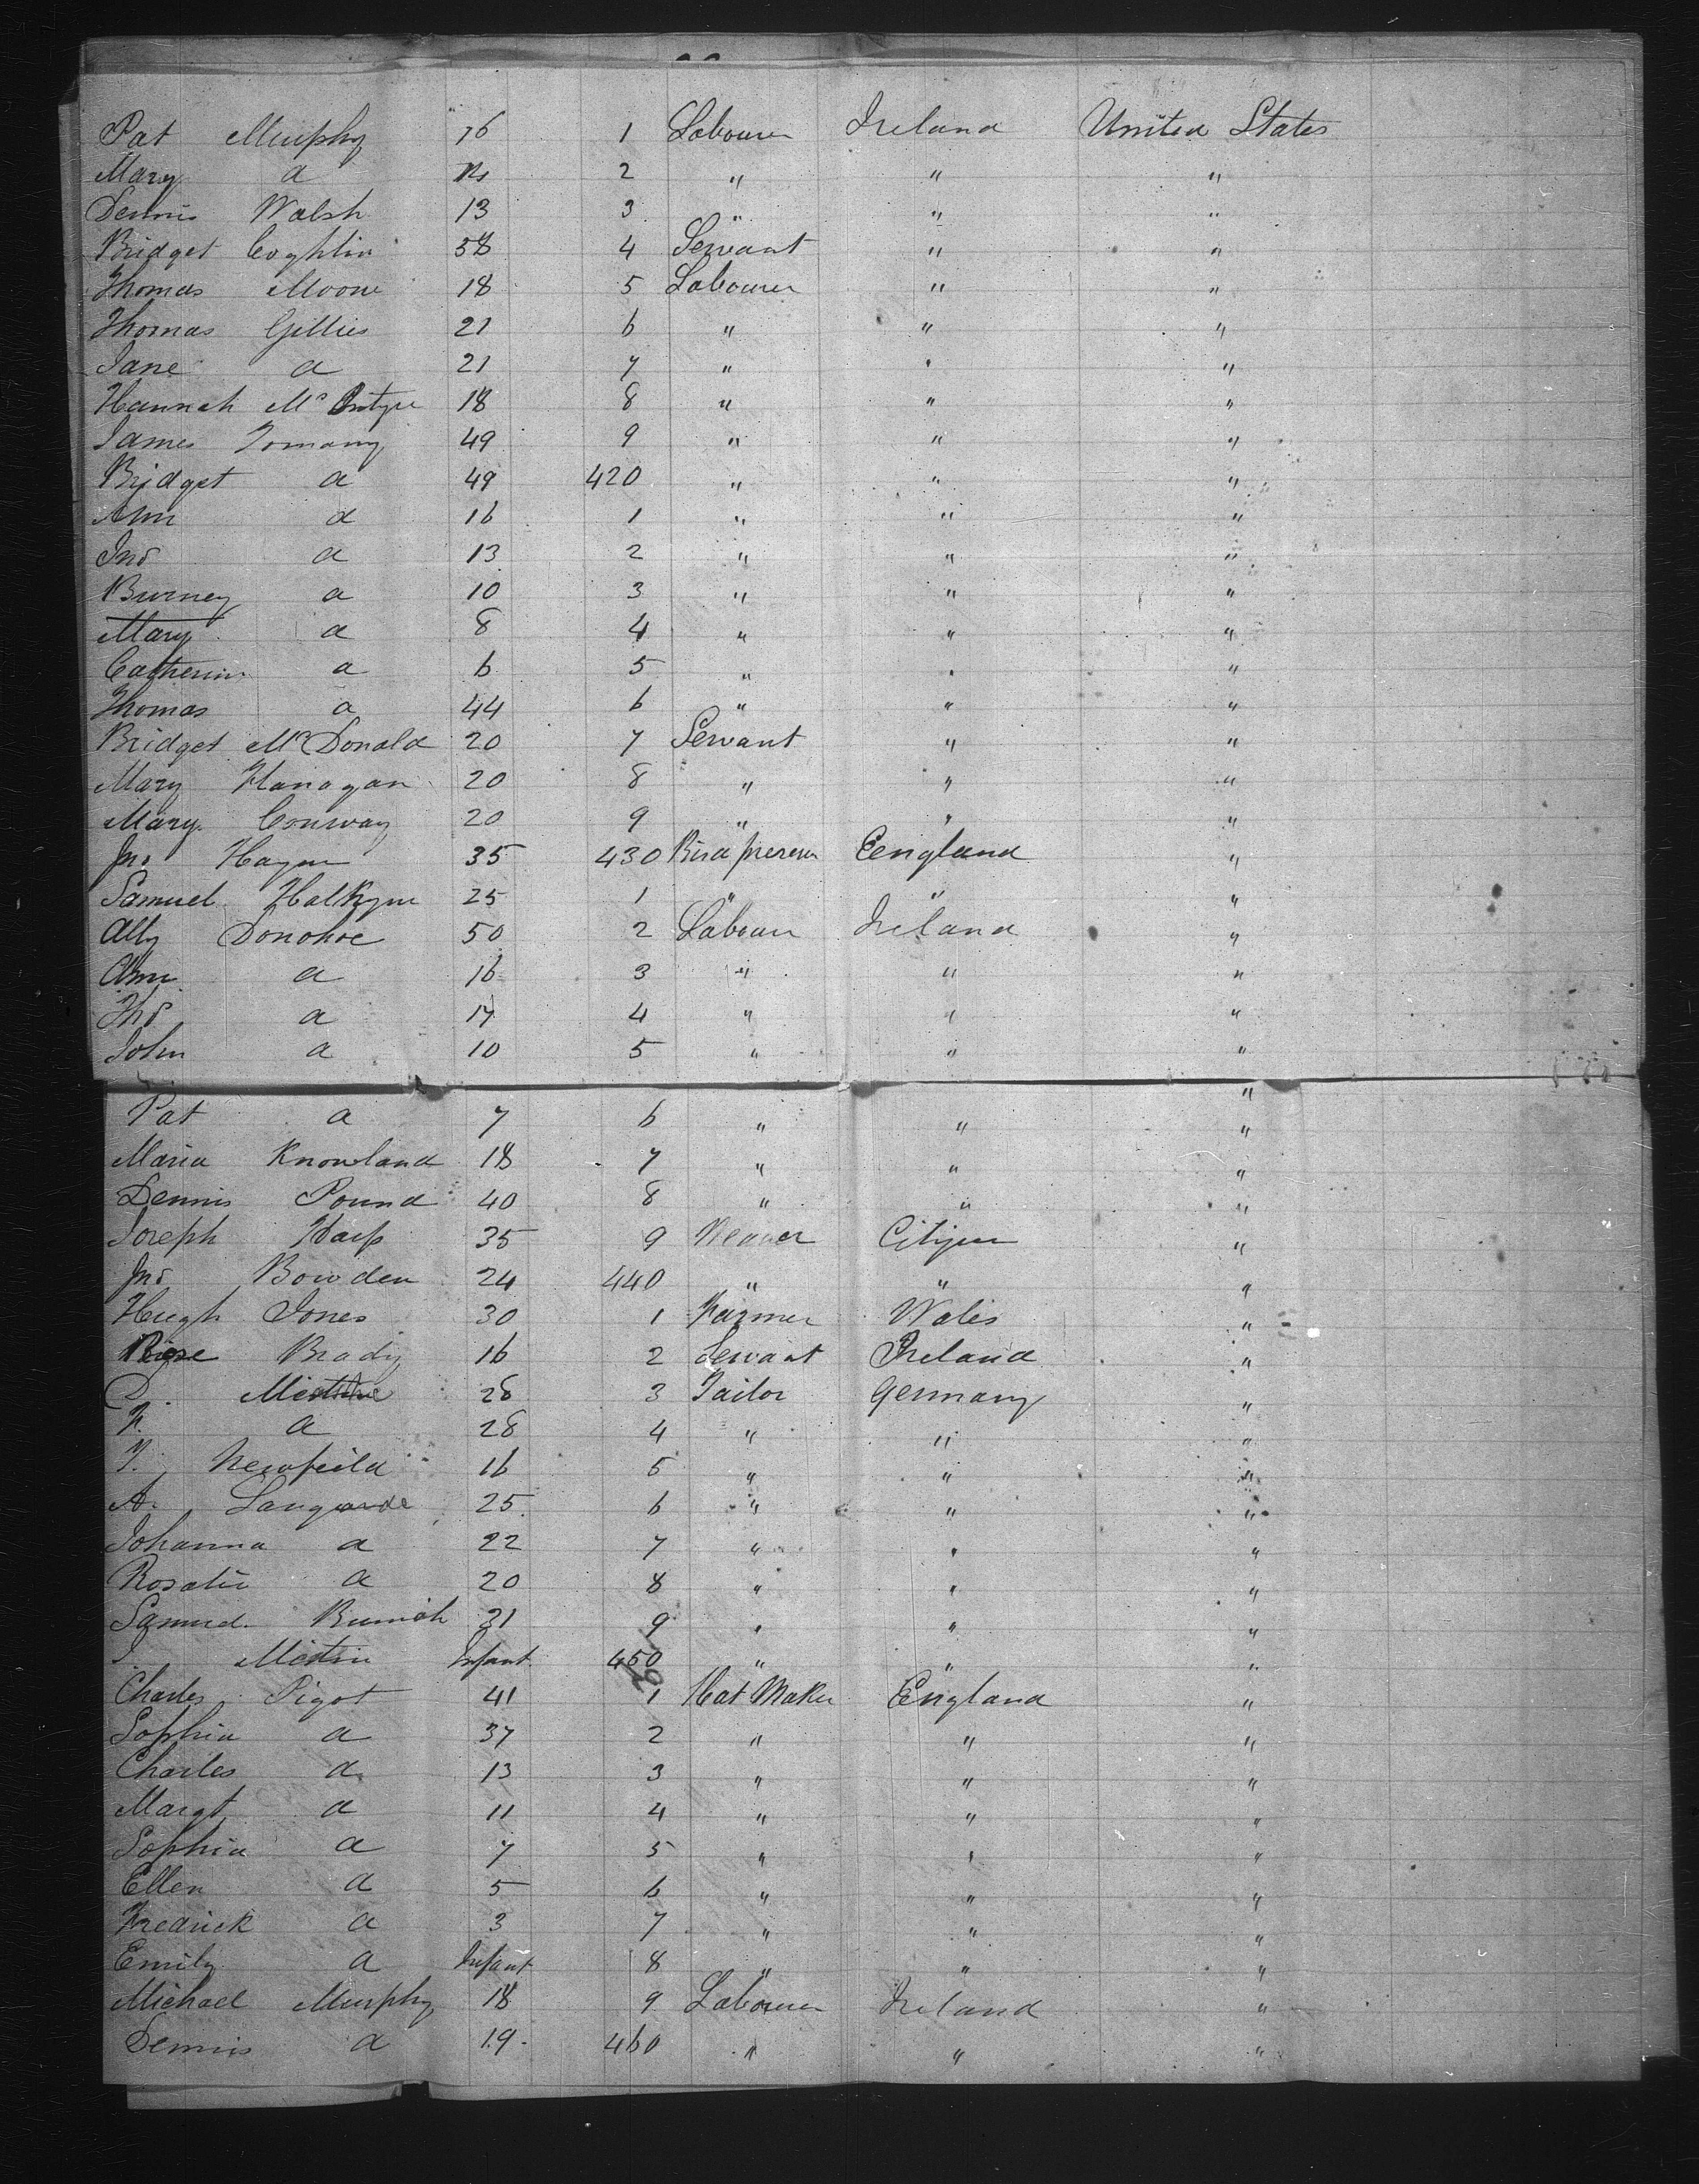 Pat Murphy 76 1 Labourer Ireland United States
Mary a 2 " " "
Dennis Walsh 13 3 " " "
Bridget Coghlin 58 4 Servant " "
Thomas Moore 18 5 Labourer " "
Thomas Gillies 21 6 " " "
Jane a 21 7 " " "
Hannah McIntyre 18 8 " " "
James Tomany 49 9 " " "
Bridget a 49 420 " " "
Ann a 16 1 " " "
Jno a 13 2 " " "
Burney a 10 3 " " "
Mary a 8 4 " " "
Catherin a 6 5 " " "
Thomas a 44 6 " " "
Bridget McDonald 20 7 Servant " "
Mary Flanagan 20 8 " " "
Mary Conway 20 9 " " "
Jno 35 430 Bird England "
Samuel Halkyne 25 1 " " "
Ally Donohoe 50 2 Labour Ireland "
Ann a 16 3 " " "
Tho a 14 4 " " "
John a 10 5 " " "
"
Pat a 7 6 " " "
Maria Knowland 18 7 " " "
Dennis Pound 40 8 " " "
Joseph Harp 35 9 Weaver Citizen "
Jno Bowden 24 440 " " "
Hugh Jones 30 1 Farmer Wales "
Rose Brady 16 2 Servant Ireland "
28 3 Tailor Germany "
F. a 28 4 " " "
Newfeild 16 5 " " "
A. Langarde 25 6 " " "
Johanna a 22 7 " " "
Rosalie a 20 8 " " "
Samuel 9 " " "
Infant 450 " " "
Charles Pigot 41 1 Hat Maker England "
Sophia a 37 2 " " "
Charles a 13 3 " " "
Margt a 11 4 " " "
Sophia a 7 5 " " "
Ellen a 5 6 " " "
Fredrick a 3 7 " " "
Emily a Infant 8 " " "
Michael Murphy 18 9 Labourer Ireland "
Dennis a 19 460 " " "